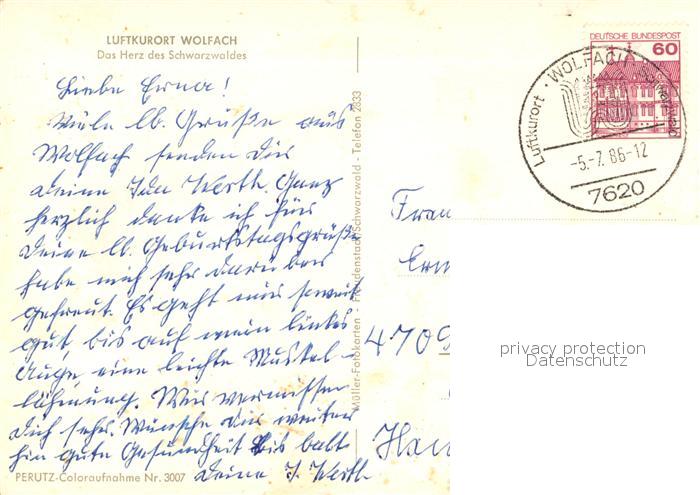 LUFTKURORT WOLFACH
Das Herz des Schwarzwaldes
Liebe Erna!
Viele lb. Grüße aus
Wolfach senden dir
deine Ida Werth. Ganz
herzlich danke ich fürs
deine lb. Geburtstagsgrüße
habe mich sehr darüber
gefreut. Es geht mir soweit
gut, bis auf mein linkes
Auge, eine leichte Muskel-
lähmung. Wir vermissen
dich sehr. Wünsche dir weiter
hin gute Gesundheit bis bald
deine I. Werth
PERUTZ-Coloraufnahme Nr. 3007
Müller-Fotokarten - Freudenstadt/Schwarzwald - Telefon 2833
DEUTSCHE BUNDESPOST
60
Luftkurort · WOLFACH
-5.-7.86-12
7620
Frau
4709
privacy protection
Datenschutz